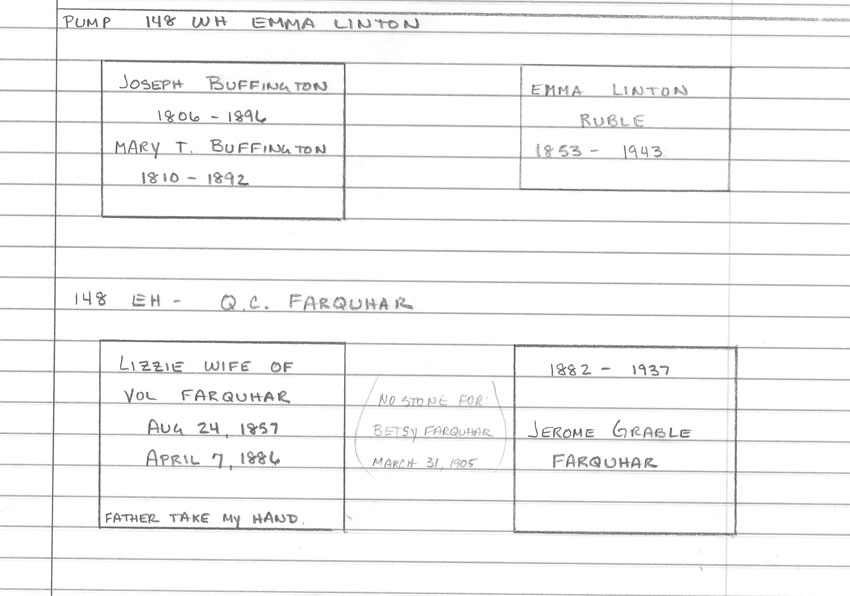 PUMP 148 WH EMMA LINTON
JOSEPH BUFFINGTON
1806 - 1896
MARY T. BUFFINGTON
1810 - 1892
EMMA LINTON
RUBLE
1853 - 1943
148 EH - Q.C. FARQUHAR
LIZZIE WIFE OF
VOL FARQUHAR
AUG 24, 1857
APRIL 7, 1886
FATHER TAKE MY HAND.
NO STONE FOR
BETSY FARQUHAR
MARCH 31, 1905
1882 - 1937
JEROME GRABLE
FARQUHAR